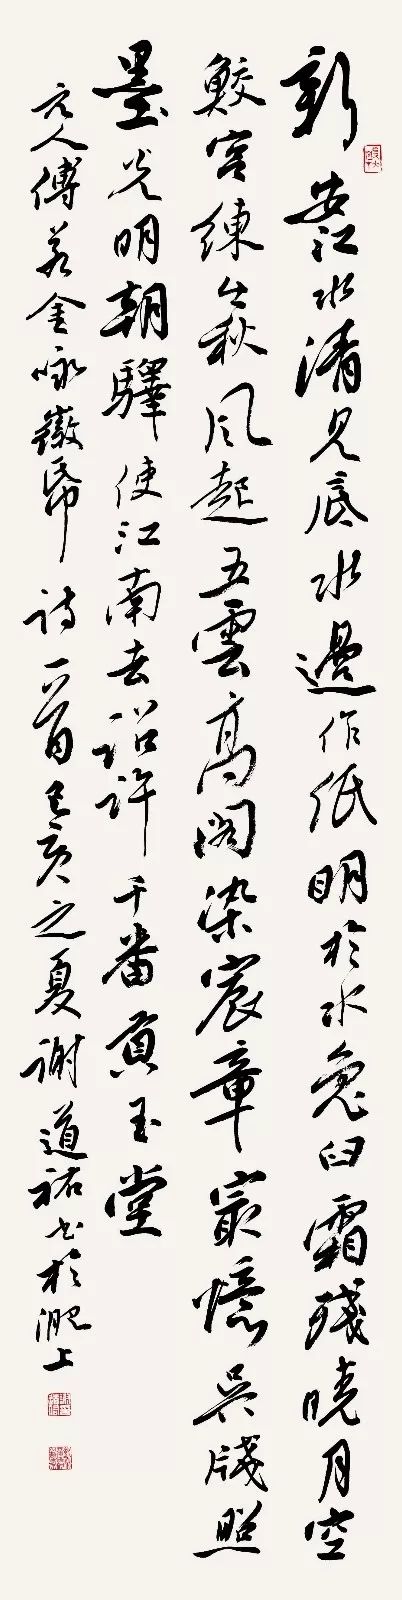 新安江水清見底水邊作紙明於水兔臼霜殘曉月空
鮫宮練出秋風起五雲高閣染宸章最憶吳牋照
墨光明朝驛使江南去詔許千番貢玉堂
元人傅若金咏徽紙詩一首己亥之夏謝道祐書於淝上